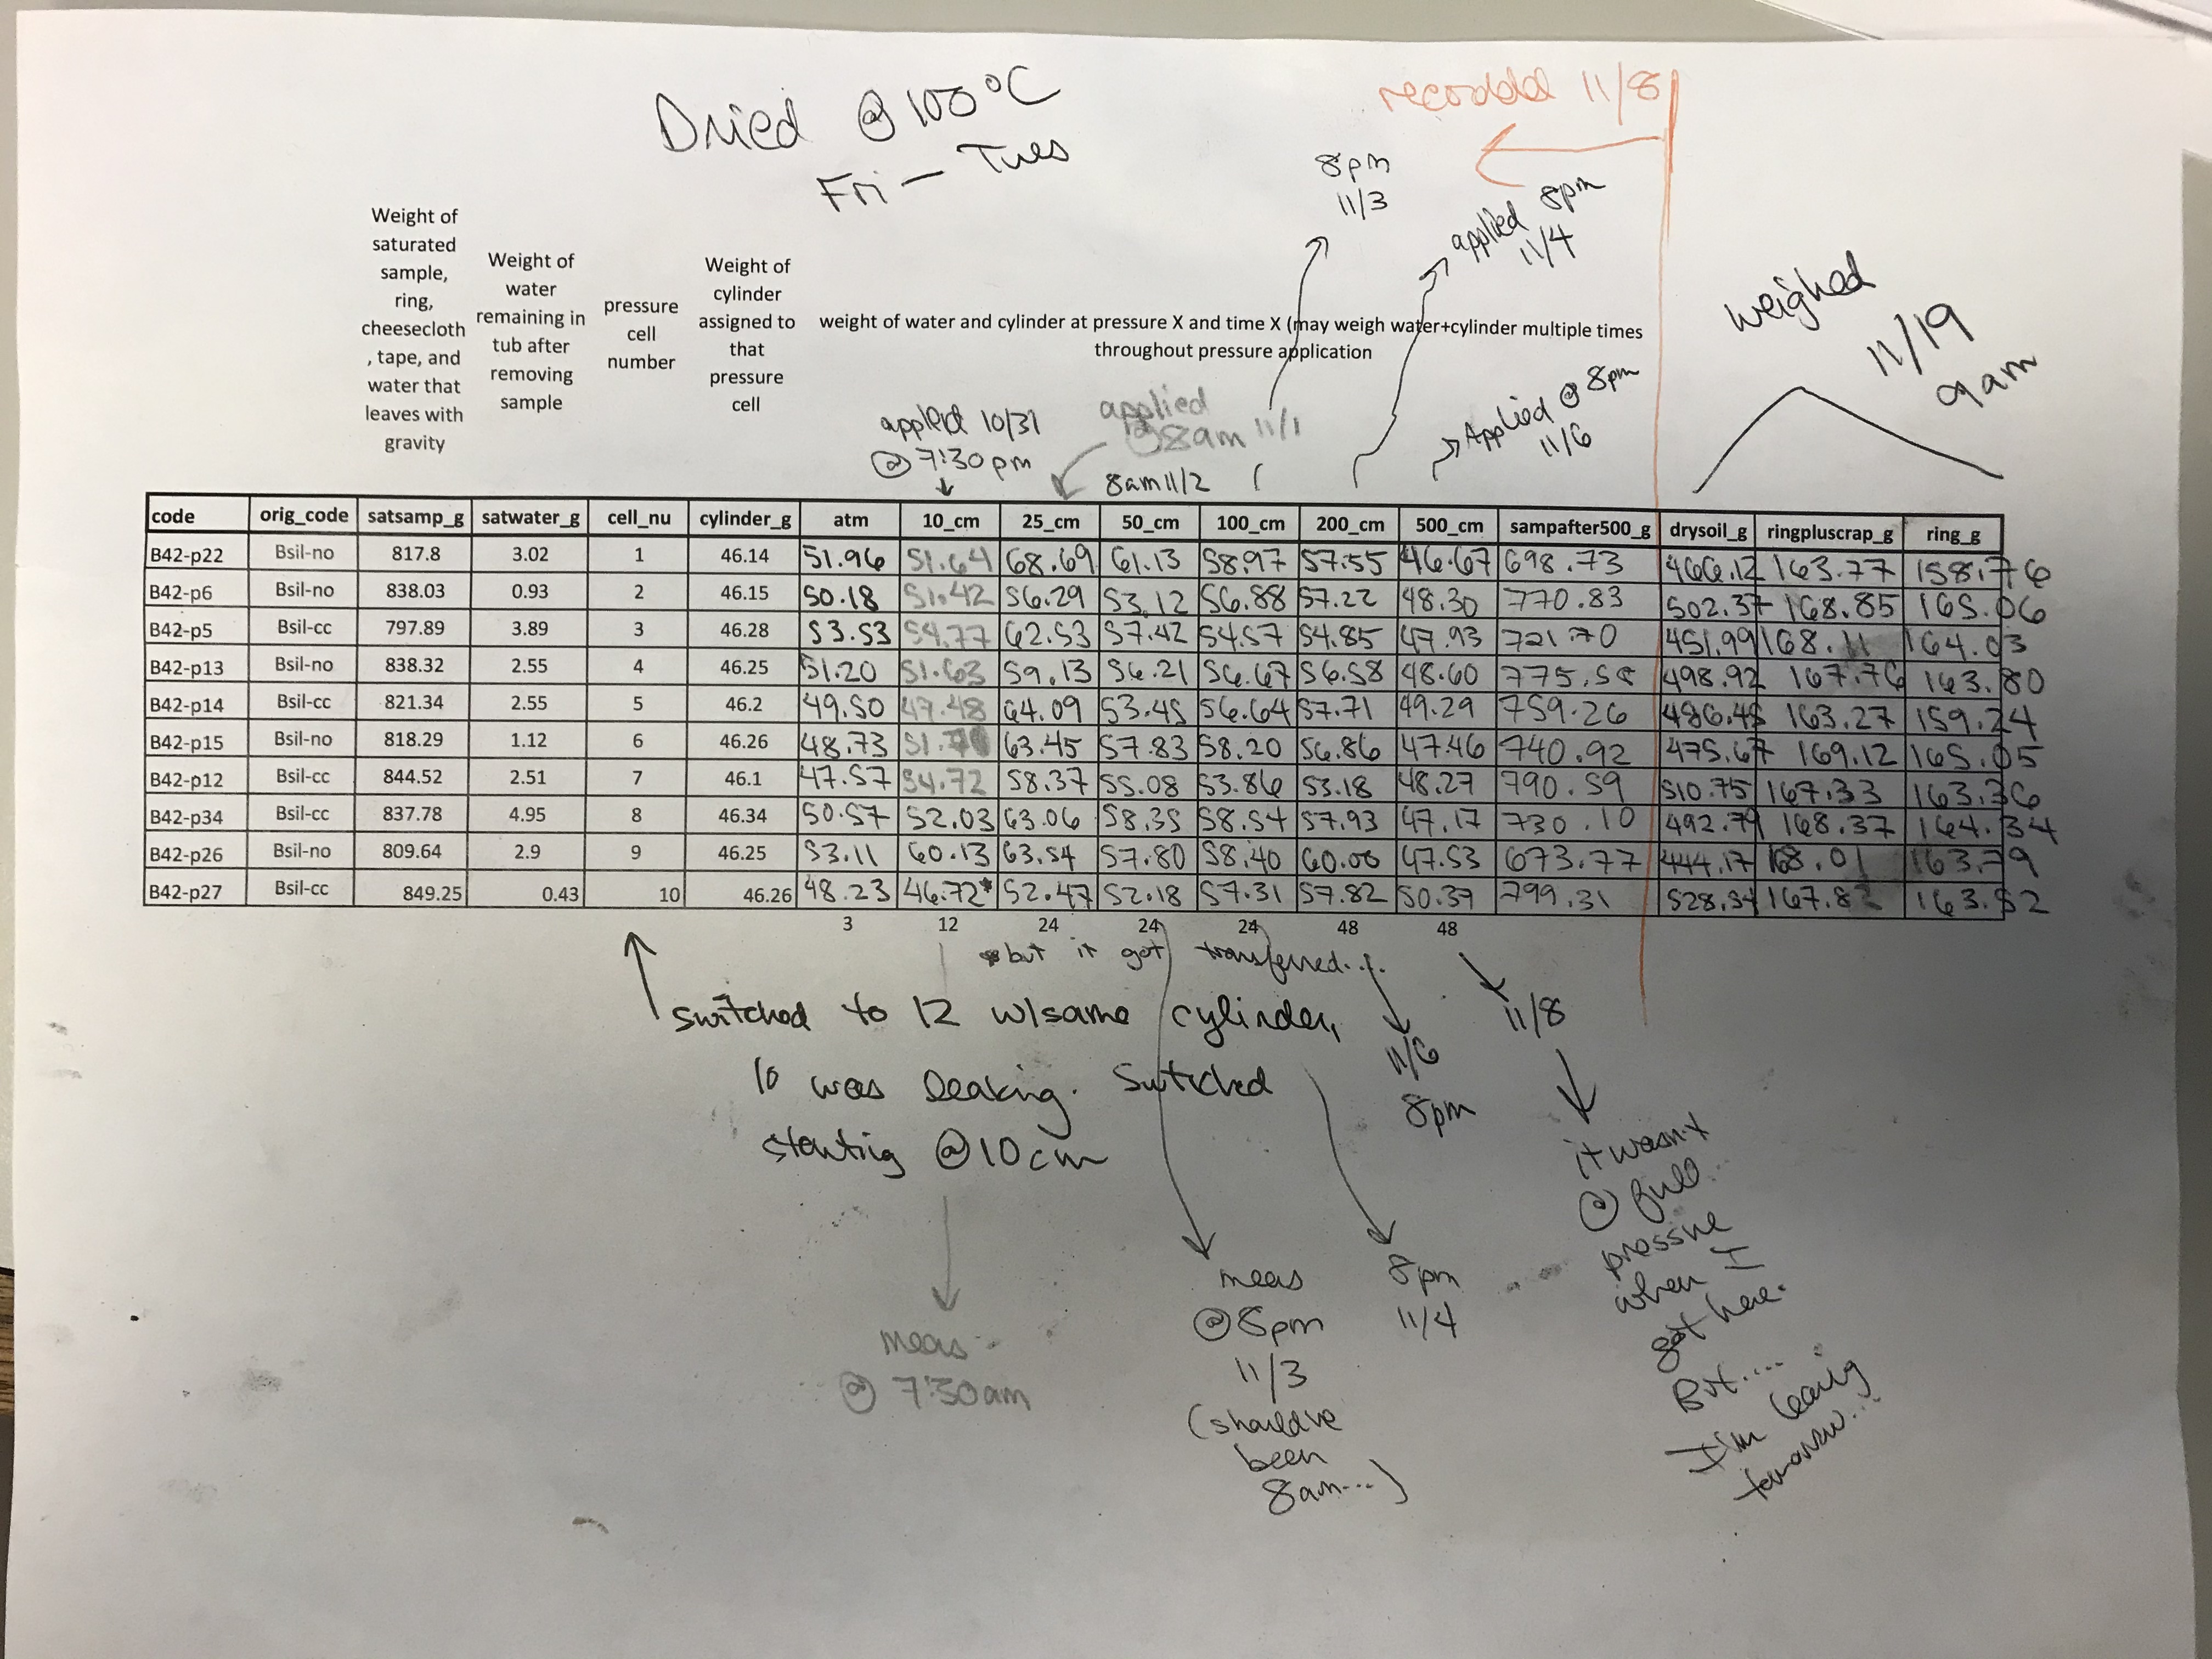 Dried @ 100°C
Fri – Tues
recorddd 11/8
8pm
11/3
applied 8pm
11/4
weighed
11/19
9am
Weight of
saturated
sample,
ring,
cheesecloth
, tape, and
water that
leaves with
gravity
Weight of
water
remaining in
tub after
removing
sample
pressure
cell
number
Weight of
cylinder
assigned to
that
pressure
cell
weight of water and cylinder at pressure X and time X (may weigh water+cylinder multiple times
throughout pressure application
applied 10/31
@ 7:30pm
applied
@ 8am 11/1
8am 11/2
Applied @ 8pm
11/6
code orig_code satsamp_g satwater_g cell_nu cylinder_g atm 10_cm 25_cm 50_cm 100_cm 200_cm 500_cm sampafter500_g drysoil_g ringpluscrap_g ring_g
B42-p22 Bsil-no 817.8 3.02 1 46.14 51.96 51.64 68.69 61.13 58.97 57.55 46.67 698.73 466.12 163.77 158.76
B42-p6 Bsil-no 838.03 0.93 2 46.15 50.18 51.42 56.29 53.12 56.88 57.22 48.30 770.83 502.37 168.85 165.06
B42-p5 Bsil-cc 797.89 3.89 3 46.28 53.53 54.77 62.53 57.42 54.57 54.85 47.93 721.70 451.99 168.11 164.03
B42-p13 Bsil-no 838.32 2.55 4 46.25 51.20 51.63 59.13 56.21 56.67 56.58 48.60 498.92 167.76 163.80
B42-p14 Bsil-cc 821.34 2.55 5 46.2 49.50 47.48 64.09 53.45 56.64 57.71 49.29 759.26 486.45 163.27 159.24
B42-p15 Bsil-no 818.29 1.12 6 46.26 48.73 63.45 57.83 58.20 56.86 47.46 740.92 475.67 169.12 165.05
B42-p12 Bsil-cc 844.52 2.51 7 46.1 47.57 54.72 58.37 55.08 53.86 53.18 48.27 790.59 510.75 167.33 163.36
B42-p34 Bsil-cc 837.78 4.95 8 46.34 50.57 52.03 63.06 58.35 58.54 57.93 47.17 730.10 492.79 168.37 164.34
B42-p26 Bsil-no 809.64 2.9 9 46.25 53.11 60.13 63.54 57.80 58.40 60.00 47.53 673.77 444.17 168.01 163.79
B42-p27 Bsil-cc 849.25 0.43 10 46.26 48.23 46.72* 52.47 52.18 57.31 57.82 50.39 799.31 528.34 163.52
3 12 24 24 24 48 48
*but it got transferred...
switched to 12 w/same cylinder,
10 was leaking. Switched
starting @ 10cm
11/6
8pm
11/8
meas
@ 7:30am
meas
@ 8pm
11/3
(should've
been
8am...)
8pm
11/4
it wasn't
@ full
pressure
when I
got here.
But....
I'm leaving
tomorrow...